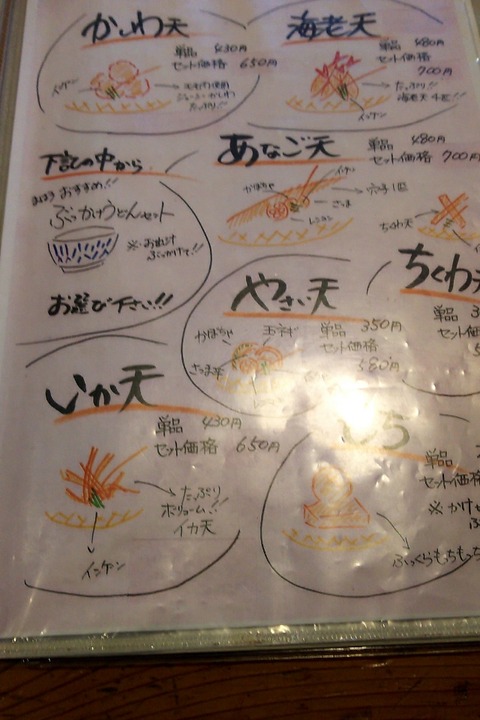 かしわ天
単品 430円
セット価格 650円
インゲン
たっぷり!!
海老天
単品 480円
セット価格
700円
たっぷり!!
海老天4匹!!
インゲン
あなご天
単品 480円
セット価格 700円
かぼちゃ
イカ
穴子1匹
さつま
レンコン
下記の中から
おすすめ!!
ぶっかけうどんセット
ぶっかけて!!
お選び下さい!!
ちくわ天
ちくわ天
単品
セット価格
やさい天
かぼちゃ
玉ネギ
さつま芋
単品 350円
セット価格
580円
いか天
単品 430円
セット価格 650円
たっぷり
ボリューム!!
イカ天
インゲン
もち
単品
セット価格
※かけ
ふっくらもちもち